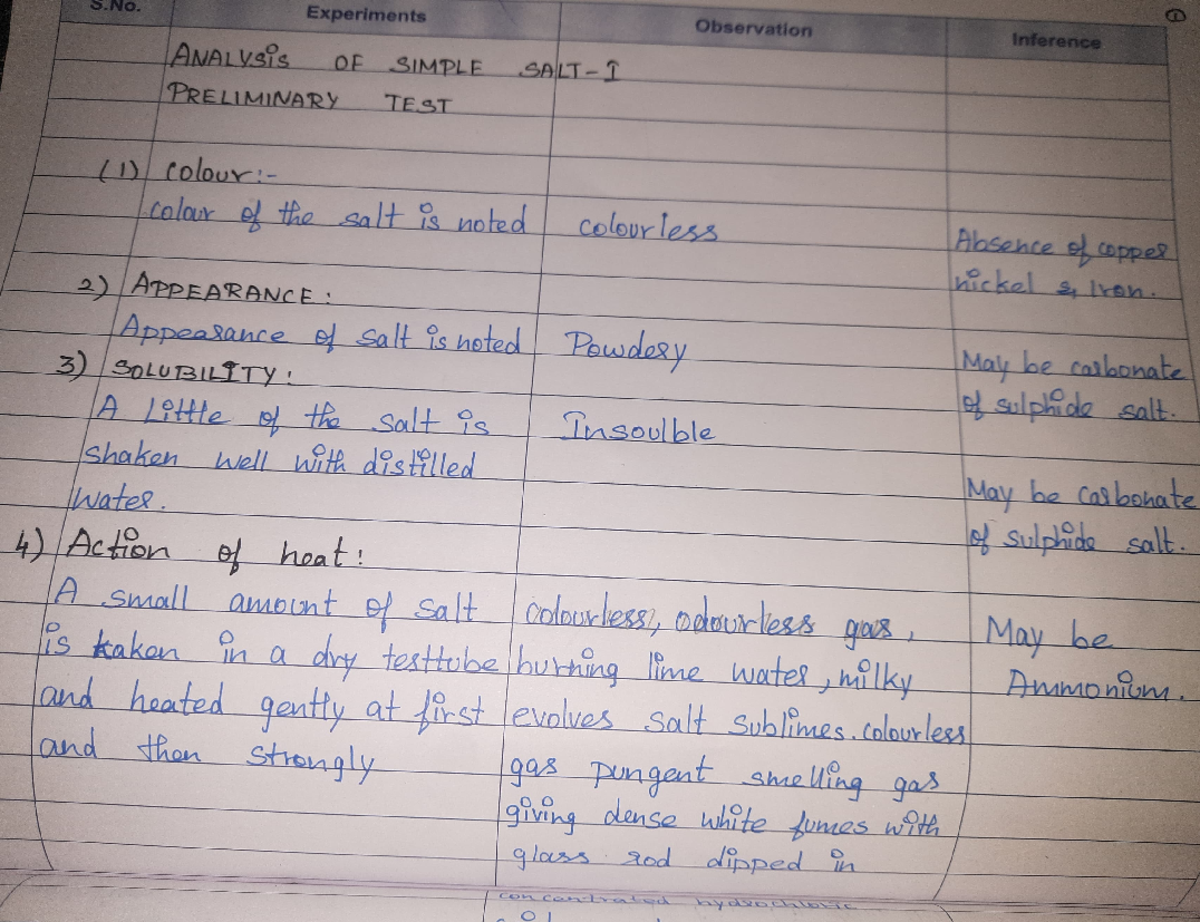 S.No. Experiments Observation Inference
①
ANALYSIS OF SIMPLE SALT-I
PRELIMINARY TEST
(1) colour:-
colour of the salt is noted colourless
Absence of copper
nickel & Iron.
2) APPEARANCE:
Appearance of salt is noted Powdery
May be carbonate
of sulphide salt.
3) SOLUBILITY:
A Little of the salt is Insoulble
shaken well with distilled
water.
May be carbonate
of sulphide salt.
4) Action of heat:
A small amount of salt colourless, odourless gas, May be
is taken in a dry testtube burning lime water, milky Ammonium.
and heated gently at first evolves salt sublimes. colourless
and then strongly gas pungent smelling gas
giving dense white fumes with
glass rod dipped in
concentrated hydrochloric